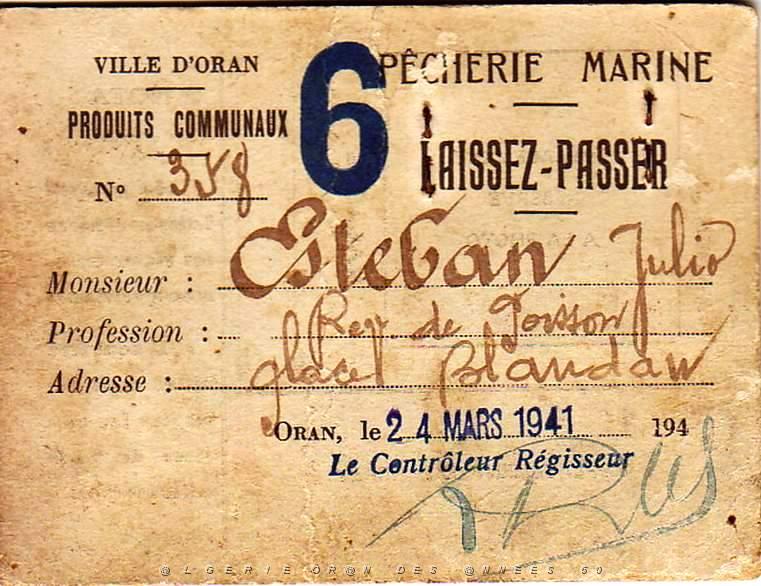 VILLE D'ORAN
PRODUITS COMMUNAUX
N° 358
6
PÊCHERIE MARINE
LAISSEZ-PASSER
Monsieur : Esteban Julio
Profession : Rev de Poisson
Adresse : Place Blandan
ORAN, le 24 MARS 1941 194
Le Contrôleur Régisseur
@LGERIE ORAN DES @NNEES 50